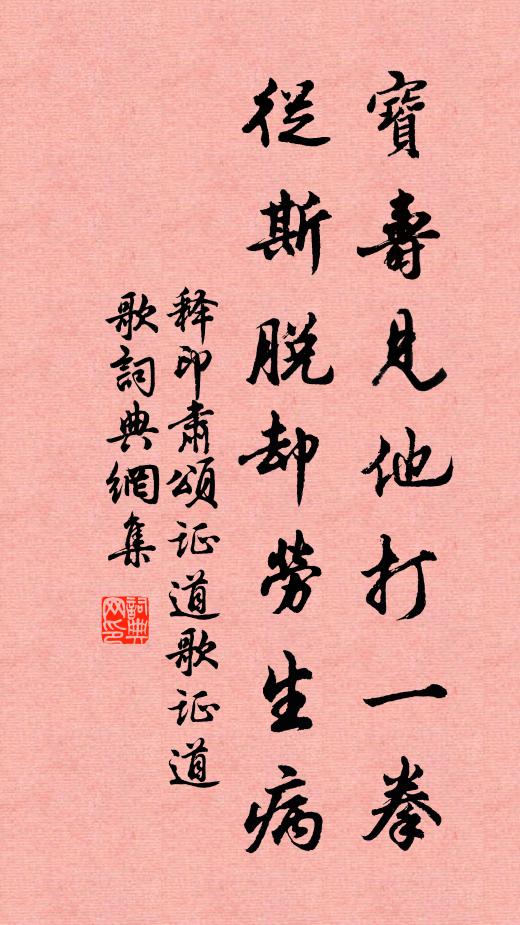 寶壽見他打一拳
從斯脫却勞生病
释印肅頌证道歌证道
歌詞典網集
詞典网印